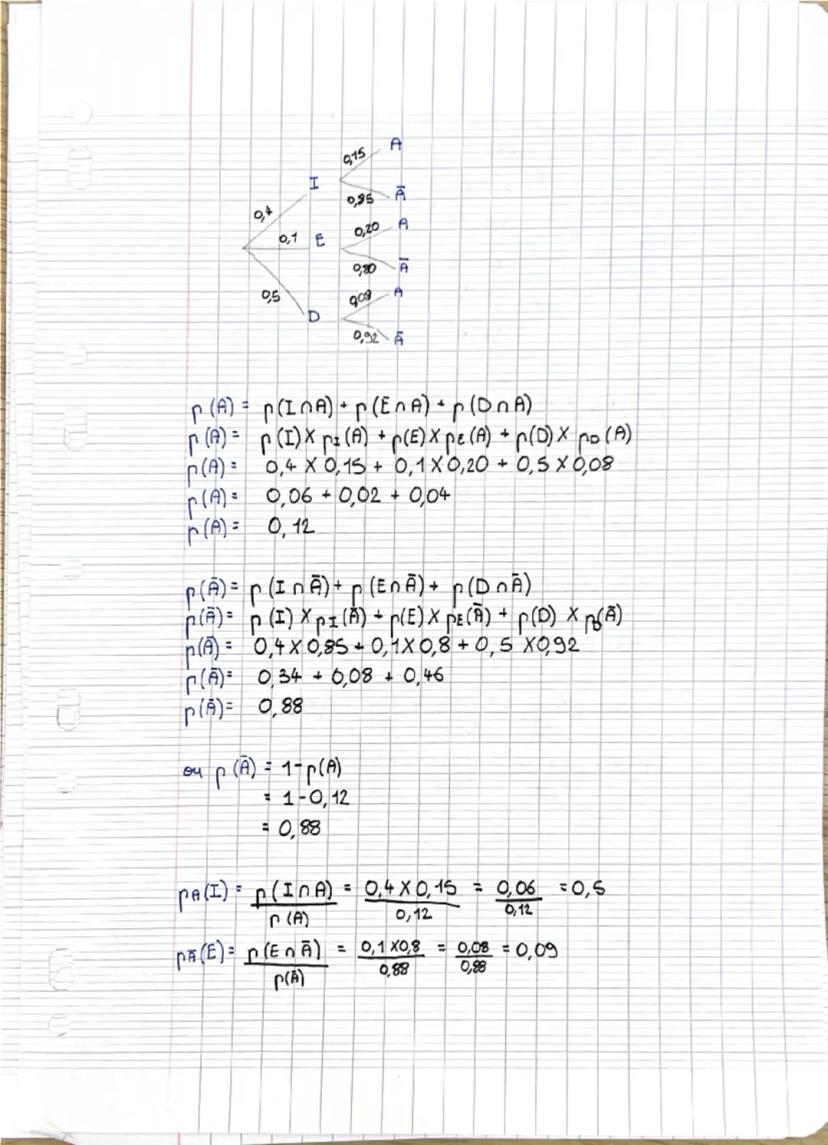 0,15 A
I
0,4 0,85 Ā
0,20 A
0,1 E
0,80 Ā
0,5 0,08 A
D
0,92 Ā
p(A) = p(I∩A) + p(E∩A) + p(D∩A)
p(A) = p(I) X pI(A) + p(E) X pE(A) + p(D) X pD(A)
p(A) = 0,4 X 0,15 + 0,1 X 0,20 + 0,5 X 0,08
p(A) = 0,06 + 0,02 + 0,04
p(A) = 0,12
p(Ā) = p(I∩Ā) + p(E∩Ā) + p(D∩Ā)
p(Ā) = p(I) X pI(Ā) + p(E) X pE(Ā) + p(D) X pD(Ā)
p(Ā) = 0,4 X 0,85 + 0,1 X 0,8 + 0,5 X 0,92
p(Ā) = 0,34 + 0,08 + 0,46
p(Ā) = 0,88
ou p(Ā) = 1 - p(A)
= 1 - 0,12
= 0,88
pA(I) = p(I∩A)/p(A) = 0,4 X 0,15/0,12 = 0,06/0,12 = 0,5
pĀ(E) = p(E∩Ā)/p(Ā) = 0,1 X 0,8/0,88 = 0,08/0,88 = 0,09